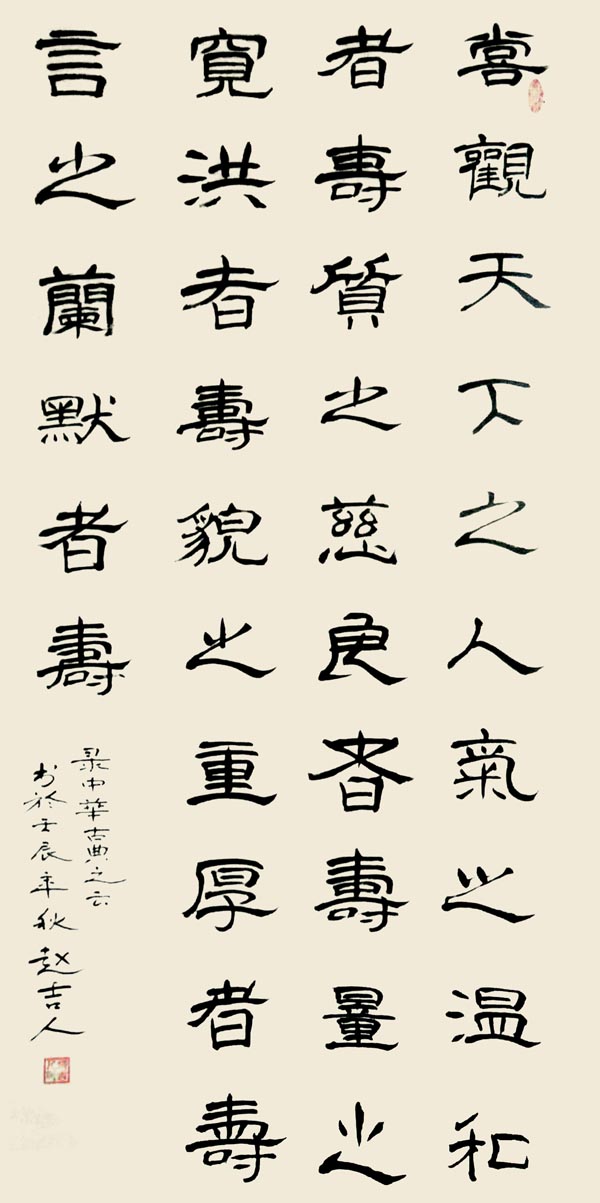 嘗觀天下之人氣之温和
者壽質之慈良者壽量之
寬洪者壽貌之重厚者壽
言之蘭默者壽
录中華古典之云
书於壬辰年秋 赵吉人